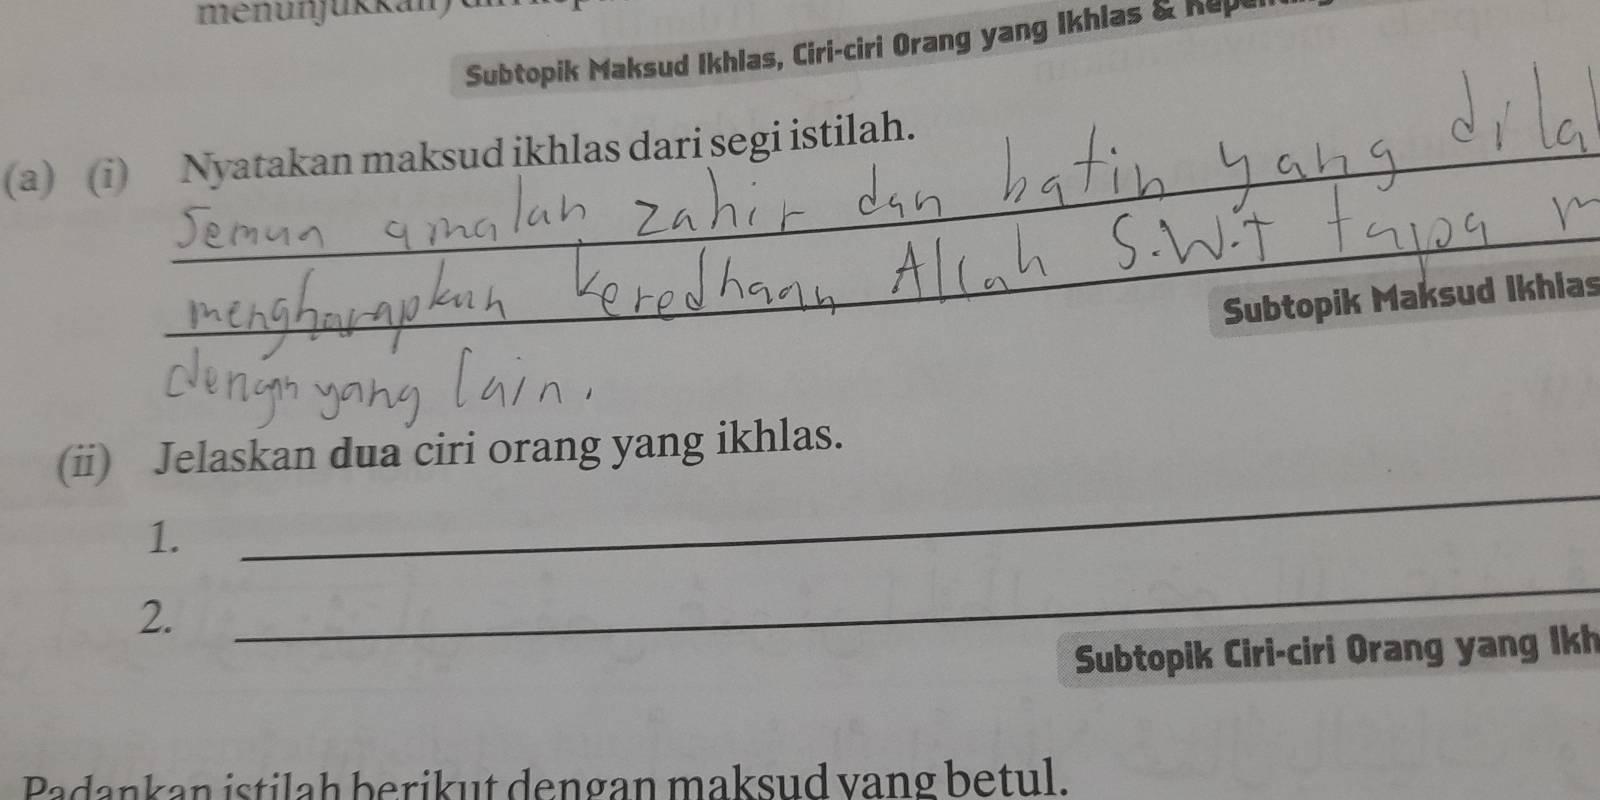 Subtopik Maksud Ikhlas, Ciri-ciri Orang yang Ikhlas &
(a) (i) Nyatakan maksud ikhlas dari segi istilah.
Semua amalan zahir dan batin yang
mengharapkan keredhaan Allah S.W.T
Subtopik Maksud Ikhlas
yang lain.
(ii) Jelaskan dua ciri orang yang ikhlas.
1.
2.
Subtopik Ciri-ciri Orang yang Ikh
Padankan istilah berikut dengan maksud yang betul.